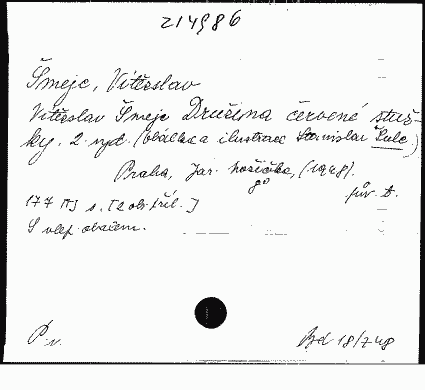 214986
Šmejc, Vítězslav
Vítězslav Šmejc Družina červené stuž-
ky. 2. vyd. (obálka a ilustrace Stanislav Kulc)
Praha, Jar. Nožička, (1948).
pův. b.
177 [1] s. [2 obr. příl.]
S vlep. obrázem.
P. v.
18/7 48